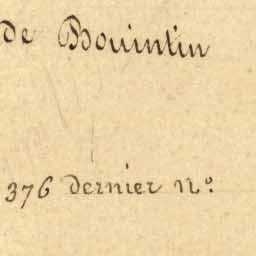 de Bouintin
376 dernier N.º